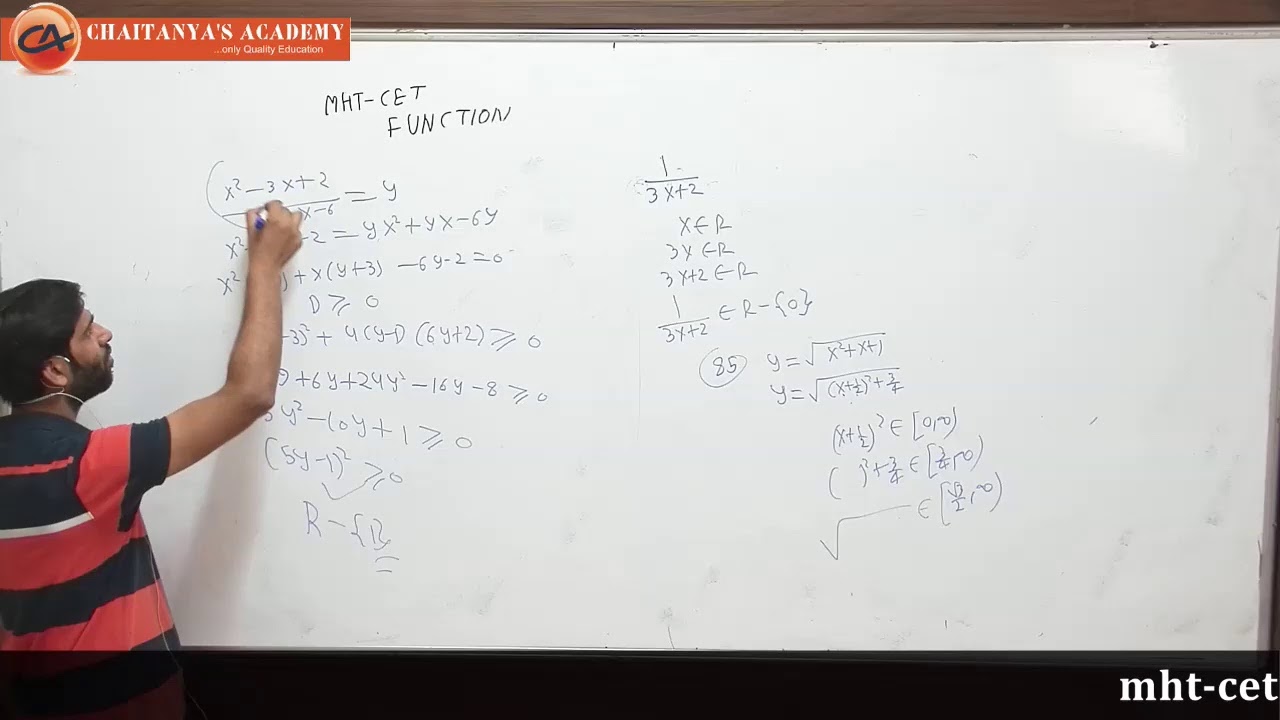 CHAITANYA'S ACADEMY
...only Quality Education
CA
MHT-CET
FUNCTION
x² - 3x+2 / x-6 = y
x² -2 = yx²+yx-6y
x² + x(y+3) -6y-2=0
D ≥ 0
-3)² + 4(y-1)(6y+2) ≥ 0
9+6y+24y²-16y-8 ≥ 0
y²-10y+1 ≥ 0
(5y-1)² ≥ 0
R-{1}
1/3x+2
x∈R
3x∈R
3x+2∈R
1/3x+2 ∈ R-{0}
85 y=√x²+x+1
y=√(x+1/2)²+3/4
(x+1/2)² ∈ [0,∞)
( )²+3/4 ∈ [3/4,∞)
√ ∈ [√3/2,∞)
mht-cet